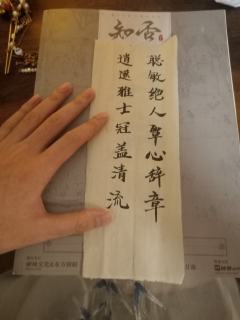 知否
聪敏绝人覃心辞章
逍遥雅士冠盖清流